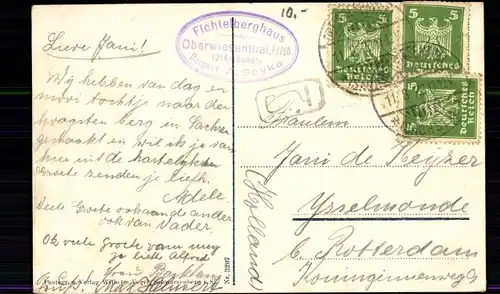 10.-
Fichtelberghaus
Oberwiesenthal, Erzgb.
5
Deutsches
Reich
5
Deutsches
Reich
5
Deutsches
Reich
Lieve Jani!
Wij hebben van dag en
mooi tochtje naar den
hoogsten berg in Sachsen
gemaakt en wil ik je van
hier uit de hartelijksten
Groete zenden je liefh.
Adele.
Veele Groete ook aan de andere
ook van Vader.
Ook veele Groete van mij
je liebe Alfred
Frau
Fräulein
Jani de Keyzer
Ysselmonde
b. Rotterdam
Koninginneweg
(Holland)
Nr. 3207